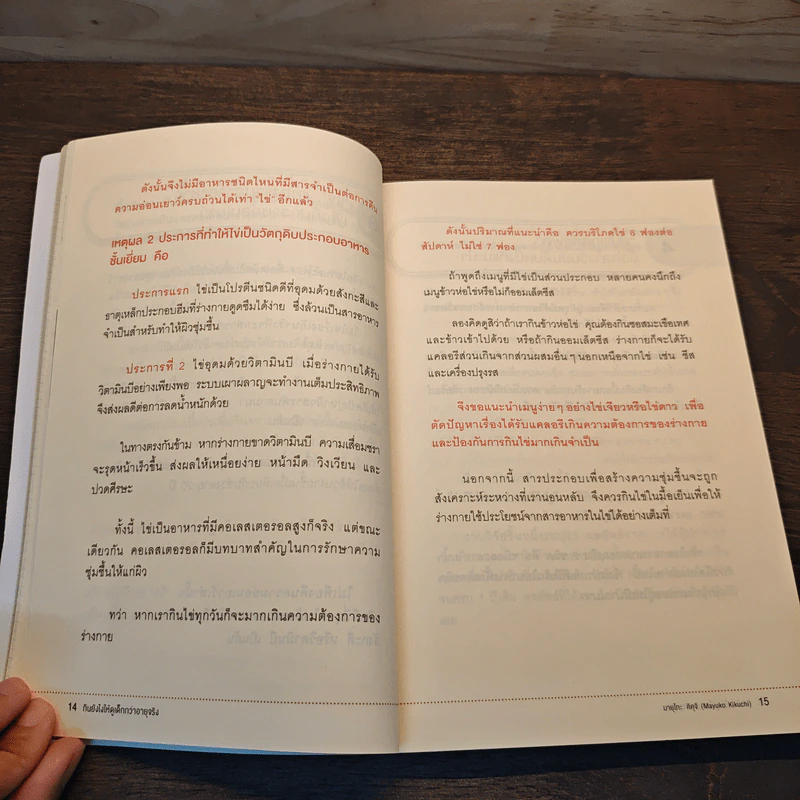 ดังนั้นจึงไม่มีอาหารชนิดไหนที่มีสารจำเป็นต่อการคืน
ความอ่อนเยาว์ครบถ้วนได้เท่า "ไข่" อีกแล้ว
เหตุผล 2 ประการที่ทำให้ไข่เป็นวัตถุดิบประกอบอาหาร
ชั้นเยี่ยม คือ
ประการแรก ไข่เป็นโปรตีนชนิดดีที่อุดมด้วยสังกะสีและ
ธาตุเหล็กประกอบฮีมที่ร่างกายดูดซึมได้ง่าย ซึ่งล้วนเป็นสารอาหาร
จำเป็นสำหรับทำให้ผิวชุ่มชื้น
ประการที่ 2 ไข่อุดมด้วยวิตามินบี เมื่อร่างกายได้รับ
วิตามินบีอย่างเพียงพอ ระบบเผาผลาญจะทำงานเต็มประสิทธิภาพ
จึงส่งผลดีต่อการลดน้ำหนักด้วย
ในทางตรงกันข้าม หากร่างกายขาดวิตามินบี ความเสื่อมชรา
จะรุดหน้าเร็วขึ้น ส่งผลให้เหนื่อยง่าย หน้ามืด วิงเวียน และ
ปวดศีรษะ
ทั้งนี้ ไข่เป็นอาหารที่มีคอเลสเตอรอลสูงก็จริง แต่ขณะ
เดียวกัน คอเลสเตอรอลก็มีบทบาทสำคัญในการรักษาความ
ชุ่มชื้นให้แก่ผิว
ทว่า หากเรากินไข่ทุกวันก็จะมากเกินความต้องการของ
ร่างกาย
14 กินยังไงให้ดูเด็กกว่าอายุจริง
ดังนั้นปริมาณที่แนะนำคือ ควรบริโภคไข่ 6 ฟองต่อ
สัปดาห์ ไม่ใช่ 7 ฟอง
ถ้าพูดถึงเมนูที่มีไข่เป็นส่วนประกอบ หลายคนคงนึกถึง
เมนูข้าวห่อไข่หรือไม่ก็ออมเล็ตชีส
ลองคิดดูสิว่าถ้าเรากินข้าวห่อไข่ คุณต้องกินซอสมะเขือเทศ
และข้าวเข้าไปด้วย หรือถ้ากินออมเล็ตชีส ร่างกายก็จะได้รับ
แคลอรีส่วนเกินจากส่วนผสมอื่นๆ นอกเหนือจากไข่ เช่น ชีส
และเครื่องปรุงรส
จึงขอแนะนำเมนูง่ายๆ อย่างไข่เจียวหรือไข่ดาว เพื่อ
ตัดปัญหาเรื่องได้รับแคลอรีเกินความต้องการของร่างกาย
และป้องกันการกินไข่มากเกินจำเป็น
นอกจากนี้ สารประกอบเพื่อสร้างความชุ่มชื้นจะถูก
สังเคราะห์ระหว่างที่เรานอนหลับ จึงควรกินไข่ในมื้อเย็นเพื่อให้
ร่างกายใช้ประโยชน์จากสารอาหารในไข่ได้อย่างเต็มที่
มายุโกะ คิคุจิ (Mayuko Kikuchi) 15